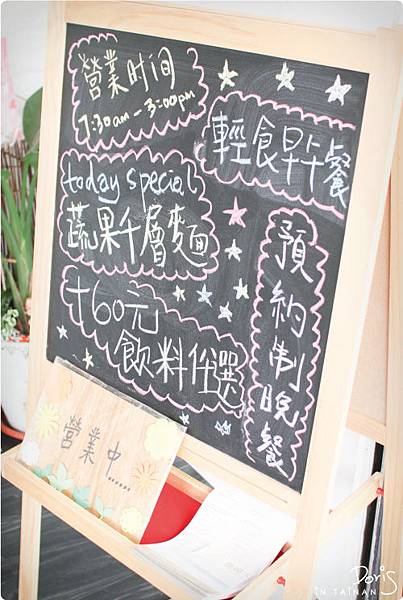 營業时间
7:30am-3:00pm
輕食早午餐
today special
蔬果千層麵
預約制晚餐
+60元
飲料任選
營業中......
Doris
IN TAINAN